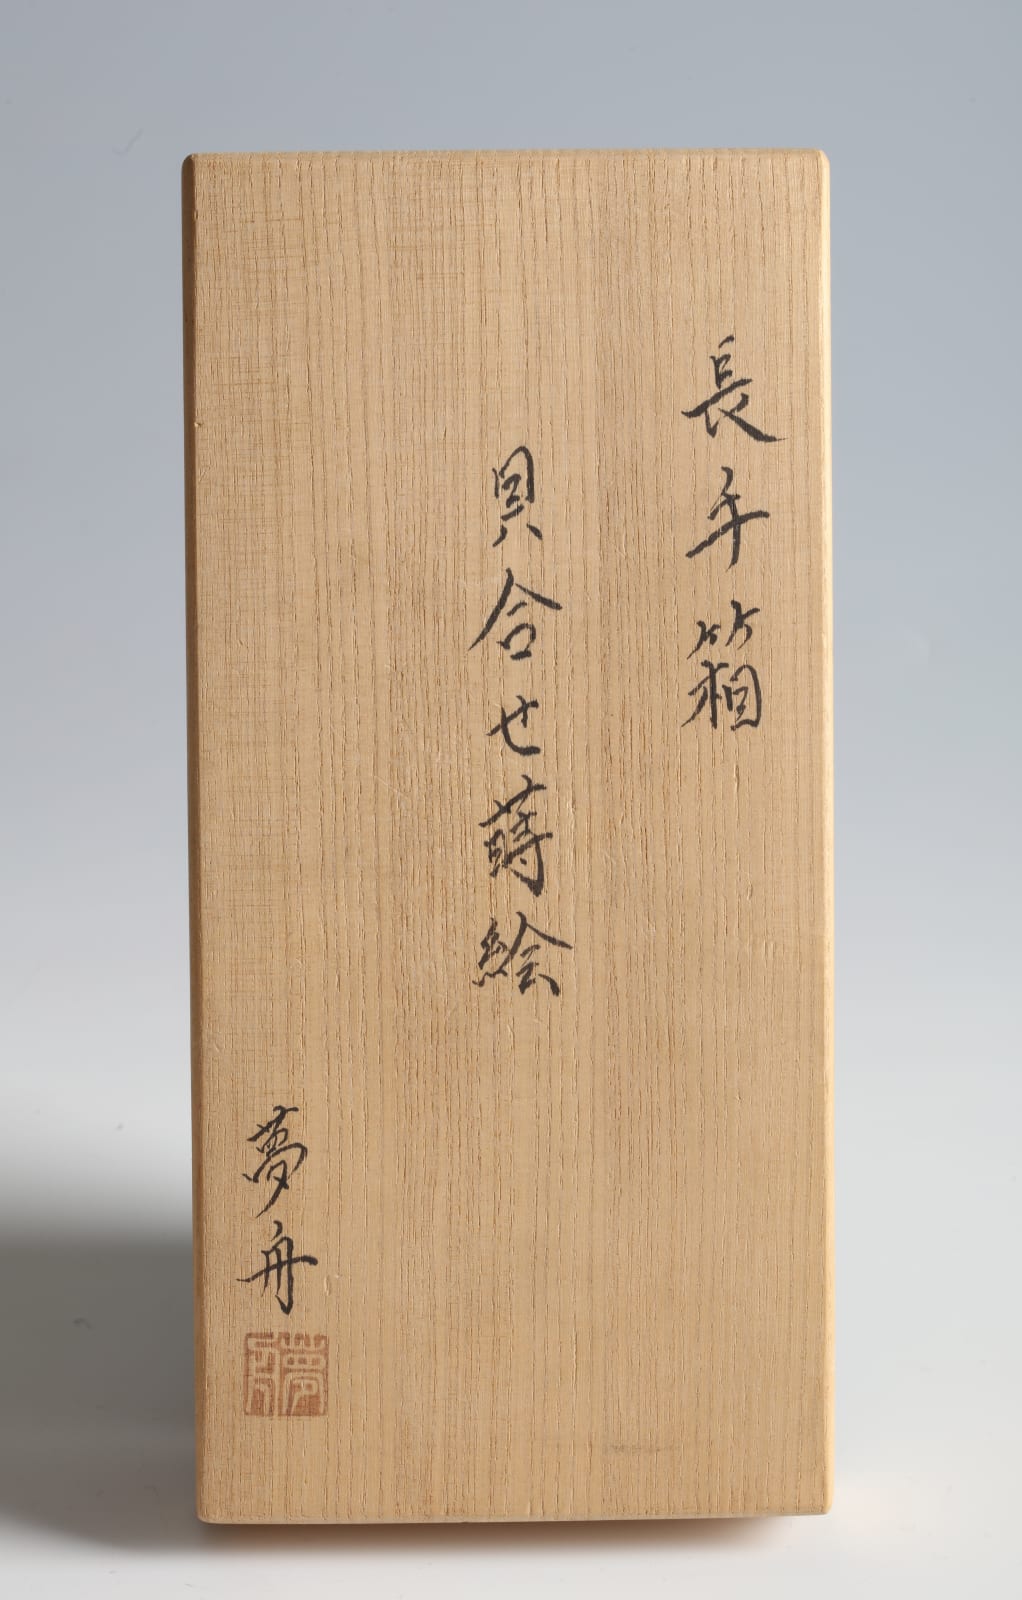 長手箱
貝合せ蒔絵
夢舟
夢舟